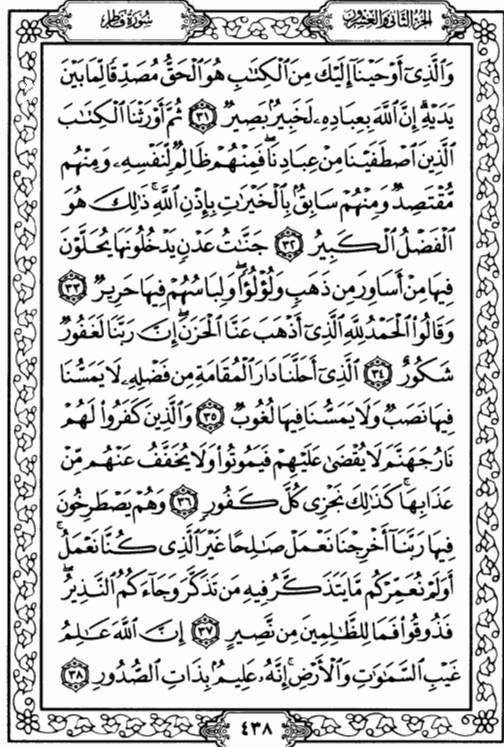 الجزء الثاني والعشرون
سورة فاطر
وَالَّذِىٓ أَوْحَيْنَآ إِلَيْكَ مِنَ ٱلْكِتَٰبِ هُوَ ٱلْحَقُّ مُصَدِّقًا لِّمَا بَيْنَ
يَدَيْهِ إِنَّ ٱللَّهَ بِعِبَادِهِۦ لَخَبِيرٌۢ بَصِيرٌ ٣١ ثُمَّ أَوْرَثْنَا ٱلْكِتَٰبَ
ٱلَّذِينَ ٱصْطَفَيْنَا مِنْ عِبَادِنَا ۖ فَمِنْهُمْ ظَالِمٌ لِّنَفْسِهِۦ وَمِنْهُم
مُّقْتَصِدٌ وَمِنْهُمْ سَابِقٌۢ بِٱلْخَيْرَٰتِ بِإِذْنِ ٱللَّهِ ۚ ذَٰلِكَ هُوَ
ٱلْفَضْلُ ٱلْكَبِيرُ ٣٢ جَنَّٰتُ عَدْنٍ يَدْخُلُونَهَا يُحَلَّوْنَ
فِيهَا مِنْ أَسَاوِرَ مِن ذَهَبٍ وَلُؤْلُؤًا ۖ وَلِبَاسُهُمْ فِيهَا حَرِيرٌ ٣٣
وَقَالُوا۟ ٱلْحَمْدُ لِلَّهِ ٱلَّذِىٓ أَذْهَبَ عَنَّا ٱلْحَزَنَ ۖ إِنَّ رَبَّنَا لَغَفُورٌ
شَكُورٌ ٣٤ ٱلَّذِىٓ أَحَلَّنَا دَارَ ٱلْمُقَامَةِ مِن فَضْلِهِۦ لَا يَمَسُّنَا
فِيهَا نَصَبٌ وَلَا يَمَسُّنَا فِيهَا لُغُوبٌ ٣٥ وَٱلَّذِينَ كَفَرُوا۟ لَهُمْ
نَارُ جَهَنَّمَ لَا يُقْضَىٰ عَلَيْهِمْ فَيَمُوتُوا۟ وَلَا يُخَفَّفُ عَنْهُم مِّنْ
عَذَابِهَا ۚ كَذَٰلِكَ نَجْزِى كُلَّ كَفُورٍ ٣٦ وَهُمْ يَصْطَرِخُونَ
فِيهَا رَبَّنَآ أَخْرِجْنَا نَعْمَلْ صَٰلِحًا غَيْرَ ٱلَّذِى كُنَّا نَعْمَلُ ۚ
أَوَلَمْ نُعَمِّرْكُم مَّا يَتَذَكَّرُ فِيهِ مَن تَذَكَّرَ وَجَآءَكُمُ ٱلنَّذِيرُ ۖ
فَذُوقُوا۟ فَمَا لِلظَّٰلِمِينَ مِن نَّصِيرٍ ٣٧ إِنَّ ٱللَّهَ عَٰلِمُ
غَيْبِ ٱلسَّمَٰوَٰتِ وَٱلْأَرْضِ ۚ إِنَّهُۥ عَلِيمٌۢ بِذَاتِ ٱلصُّدُورِ ٣٨
٤٣٨